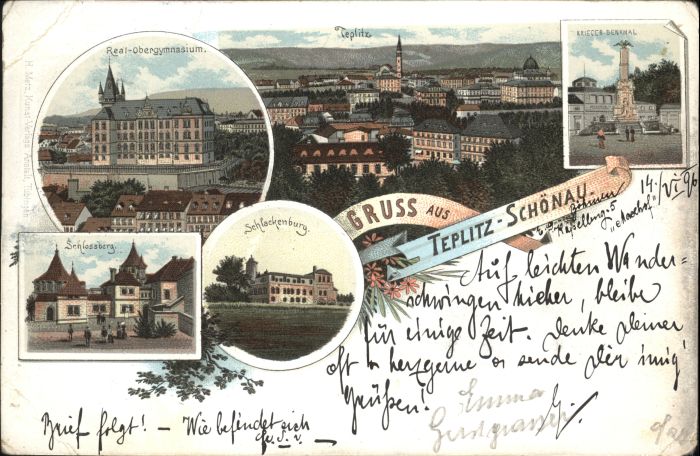 Real-Obergymnasium.
Teplitz
KRIEGER-DENKMAL
GRUSS AUS
TEPLITZ-SCHÖNAU.
14./VI 96
Böhmen
Schlossberg.
Schlackenburg.
Auf leichten Wander-
schwingen hieher, bleibe
für einige Zeit. Denke Deiner
oft u herzgerne u sende Dir innig'
Grüßen!
Brief folgt! – Wie befindet sich
Emma